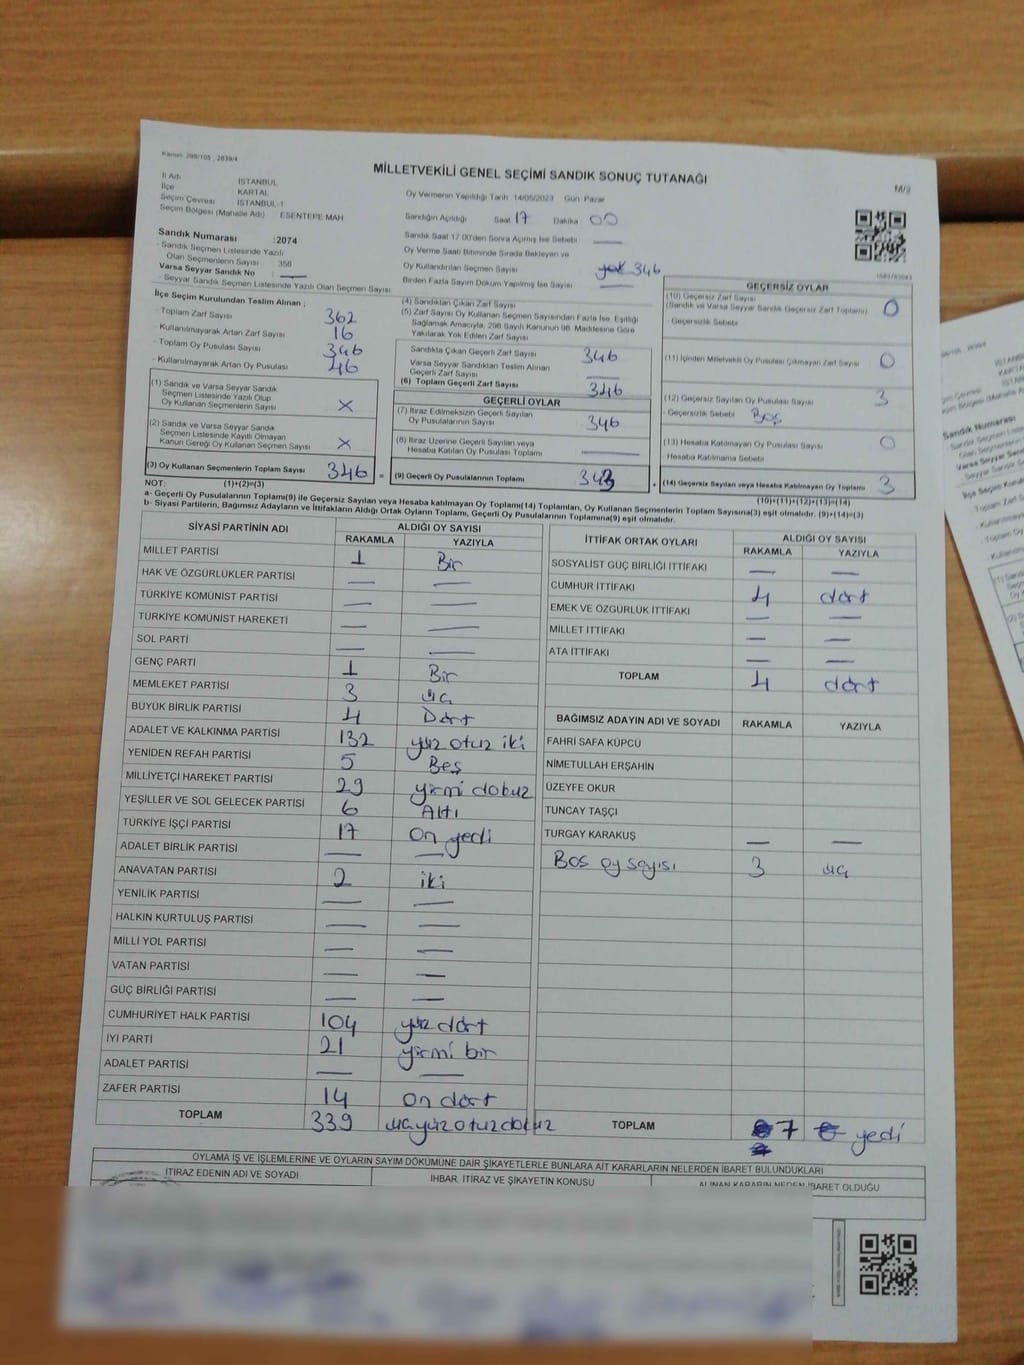 Kanun: 298/105 , 2839/4
MİLLETVEKİLİ GENEL SEÇİMİ SANDIK SONUÇ TUTANAĞI
İl Adı İSTANBUL
İlçe KARTAL
Seçim Çevresi İSTANBUL-1
Seçim Bölgesi (Mahalle Adı) ESENTEPE MAH
Oy Vermenin Yapıldığı Tarih 14/05/2023 Gün Pazar
Sandığın Açıldığı Saat 17 Dakika 00
Sandık Numarası : 2074
- Sandık Seçmen Listesinde Yazılı
Olan Seçmenlerin Sayısı : 358
Varsa Seyyar Sandık No : —
- Seyyar Sandık Seçmen Listesinde Yazılı Olan Seçmen Sayısı
Sandık Saat 17.00'den Sonra Açılmış İse Sebebi —
Oy Verme Saati Bitiminde Sırada Bekleyen ve
Oy Kullandırılan Seçmen Sayısı 346
Birden Fazla Sayım Döküm Yapılmış İse Sayısı —
İlçe Seçim Kurulundan Teslim Alınan ;
- Toplam Zarf Sayısı 362
- Kullanılmayarak Artan Zarf Sayısı 16
- Toplam Oy Pusulası Sayısı 346
- Kullanılmayarak Artan Oy Pusulası 46
(1) Sandık ve Varsa Seyyar Sandık
Seçmen Listesinde Yazılı Olup
Oy Kullanan Seçmenlerin Sayısı X
(2) Sandık ve Varsa Seyyar Sandık
Seçmen Listesinde Kayıtlı Olmayan
Kanun Gereği Oy Kullanan Seçmen Sayısı X
(3) Oy Kullanan Seçmenlerin Toplam Sayısı 346 =
(4) Sandıktan Çıkan Zarf Sayısı
(5) Zarf Sayısı Oy Kullanan Seçmen Sayısından Fazla İse, Eşitliği
Sağlamak Amacıyla, 298 Sayılı Kanunun 98. Maddesine Göre
Yakılarak Yok Edilen Zarf Sayısı
Sandıkta Çıkan Geçerli Zarf Sayısı 346
Varsa Seyyar Sandıktan Teslim Alınan
Geçerli Zarf Sayısı —
(6) Toplam Geçerli Zarf Sayısı 346
GEÇERLİ OYLAR
(7) İtiraz Edilmeksizin Geçerli Sayılan
Oy Pusulalarının Sayısı 346
(8) İtiraz Üzerine Geçerli Sayılan veya
Hesaba Katılan Oy Pusulası Toplamı —
(9) Geçerli Oy Pusulalarının Toplamı 343 +
GEÇERSİZ OYLAR
(10) Geçersiz Zarf Sayısı
(Sandık ve Varsa Seyyar Sandık Geçersiz Zarf Toplamı) 0
- Geçersizlik Sebebi
(11) İçinden Milletvekili Oy Pusulası Çıkmayan Zarf Sayısı 0
(12) Geçersiz Sayılan Oy Pusulası Sayısı 3
- Geçersizlik Sebebi Boş
(13) Hesaba Katılmayan Oy Pusulası Sayısı 0
- Hesaba Katılmama Sebebi
(14) Geçersiz Sayılan veya Hesaba Katılmayan Oy Toplamı 3
NOT: (1)+(2)=(3) (10)+(11)+(12)+(13)=(14)
a- Geçerli Oy Pusulalarının Toplamı(9) ile Geçersiz Sayılan veya Hesaba katılmayan Oy Toplamı(14) Toplamları, Oy Kullanan Seçmenlerin Toplam Sayısına(3) eşit olmalıdır. (9)+(14)=(3)
b- Siyasi Partilerin, Bağımsız Adayların ve İttifakların Aldığı Ortak Oyların Toplamı, Geçerli Oy Pusulalarının Toplamına(9) eşit olmalıdır.
SİYASİ PARTİNİN ADI ALDIĞI OY SAYISI
RAKAMLA YAZIYLA
MİLLET PARTİSİ 1 Bir
HAK VE ÖZGÜRLÜKLER PARTİSİ — —
TÜRKİYE KOMÜNİST PARTİSİ — —
TÜRKİYE KOMÜNİST HAREKETİ — —
SOL PARTİ — —
GENÇ PARTİ 1 Bir
MEMLEKET PARTİSİ 3 üç
BÜYÜK BİRLİK PARTİSİ 4 Dört
ADALET VE KALKINMA PARTİSİ 132 yüz otuz iki
YENİDEN REFAH PARTİSİ 5 Beş
MİLLİYETÇİ HAREKET PARTİSİ 29 yirmi dokuz
YEŞİLLER VE SOL GELECEK PARTİSİ 6 Altı
TÜRKİYE İŞÇİ PARTİSİ 17 On yedi
ADALET BİRLİK PARTİSİ — —
ANAVATAN PARTİSİ 2 iki
YENİLİK PARTİSİ — —
HALKIN KURTULUŞ PARTİSİ — —
MİLLİ YOL PARTİSİ — —
VATAN PARTİSİ — —
GÜÇ BİRLİĞİ PARTİSİ — —
CUMHURİYET HALK PARTİSİ 104 yüz dört
İYİ PARTİ 21 yirmi bir
ADALET PARTİSİ — —
ZAFER PARTİSİ 14 on dört
TOPLAM 339 üçyüzotuzdokuz
İTTİFAK ORTAK OYLARI ALDIĞI OY SAYISI
RAKAMLA YAZIYLA
SOSYALİST GÜÇ BİRLİĞİ İTTİFAKI — —
CUMHUR İTTİFAKI 4 dört
EMEK VE ÖZGÜRLÜK İTTİFAKI — —
MİLLET İTTİFAKI — —
ATA İTTİFAKI — —
TOPLAM 4 dört
BAĞIMSIZ ADAYIN ADI VE SOYADI RAKAMLA YAZIYLA
FAHRİ SAFA KÜPCÜ
NİMETULLAH ERŞAHİN
ÜZEYFE OKUR
TUNCAY TAŞÇI
TURGAY KARAKUŞ — —
Boş oy sayısı 3 üç
TOPLAM 7 yedi
OYLAMA İŞ VE İŞLEMLERİNE VE OYLARIN SAYIM DÖKÜMÜNE DAİR ŞİKAYETLERLE BUNLARA AİT KARARLARIN NELERDEN İBARET BULUNDUKLARI
İTİRAZ EDENİN ADI VE SOYADI İHBAR, İTİRAZ VE ŞİKAYETİN KONUSU ALINAN KARARIN NEDEN İBARET OLDUĞU